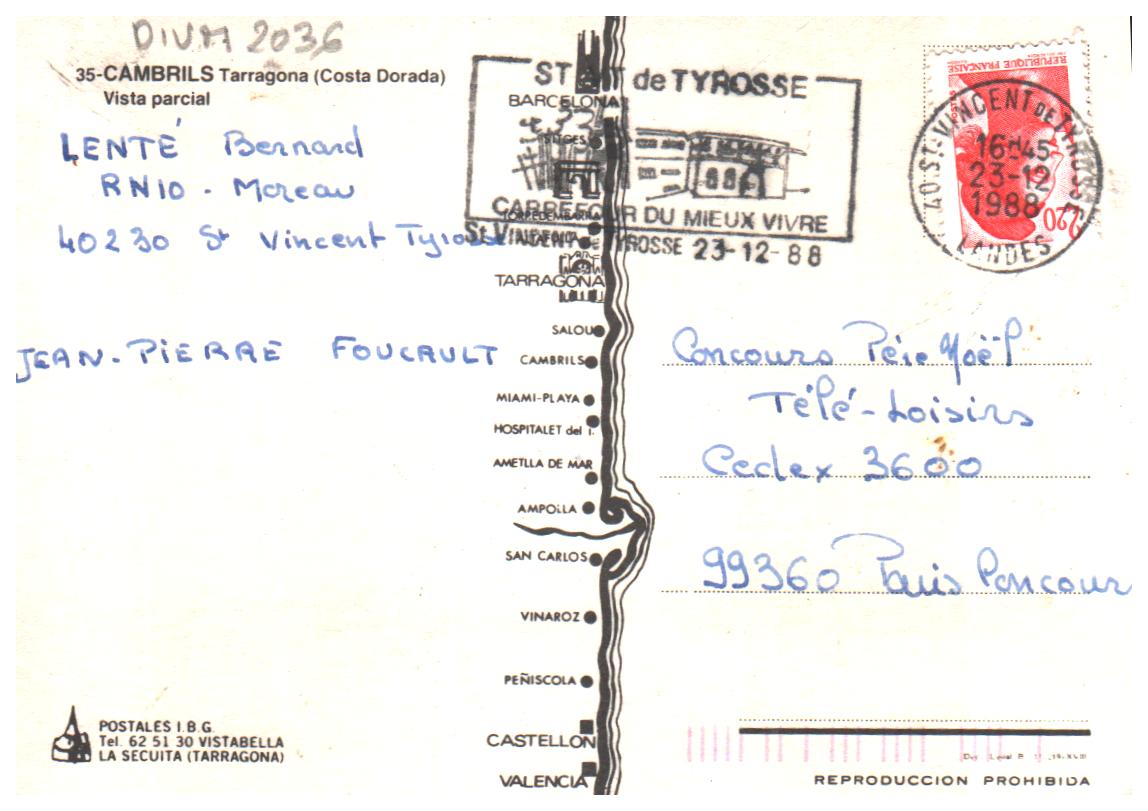 DIVM 2036
35-CAMBRILS Tarragona (Costa Dorada)
Vista parcial
LENTÉ Bernard
RN10 - Moreau
40230 St Vincent Tyrosse
JEAN-PIERRE FOUCAULT
de TYROSSE
CARREFOUR DU MIEUX VIVRE
St VINCENT TYROSSE 23-12-88
BARCELONA
SITGES
TORREDEMBARRA
TARRAGONA
SALOU
CAMBRILS
MIAMI-PLAYA
HOSPITALET del I.
AMETLLA DE MAR
AMPOLLA
SAN CARLOS
VINAROZ
PEÑISCOLA
CASTELLON
VALENCIA
REPUBLIQUE FRANÇAISE
2,20
40 ST-VINCENT DE TYROSSE
16H45
23-12
1988
LANDES
Concours Père Noël
Télé-Loisirs
Cedex 3600
99360 Paris Concours
POSTALES I.B.G.
Tel. 62 51 30 VISTABELLA
LA SECUITA (TARRAGONA)
REPRODUCCION PROHIBIDA